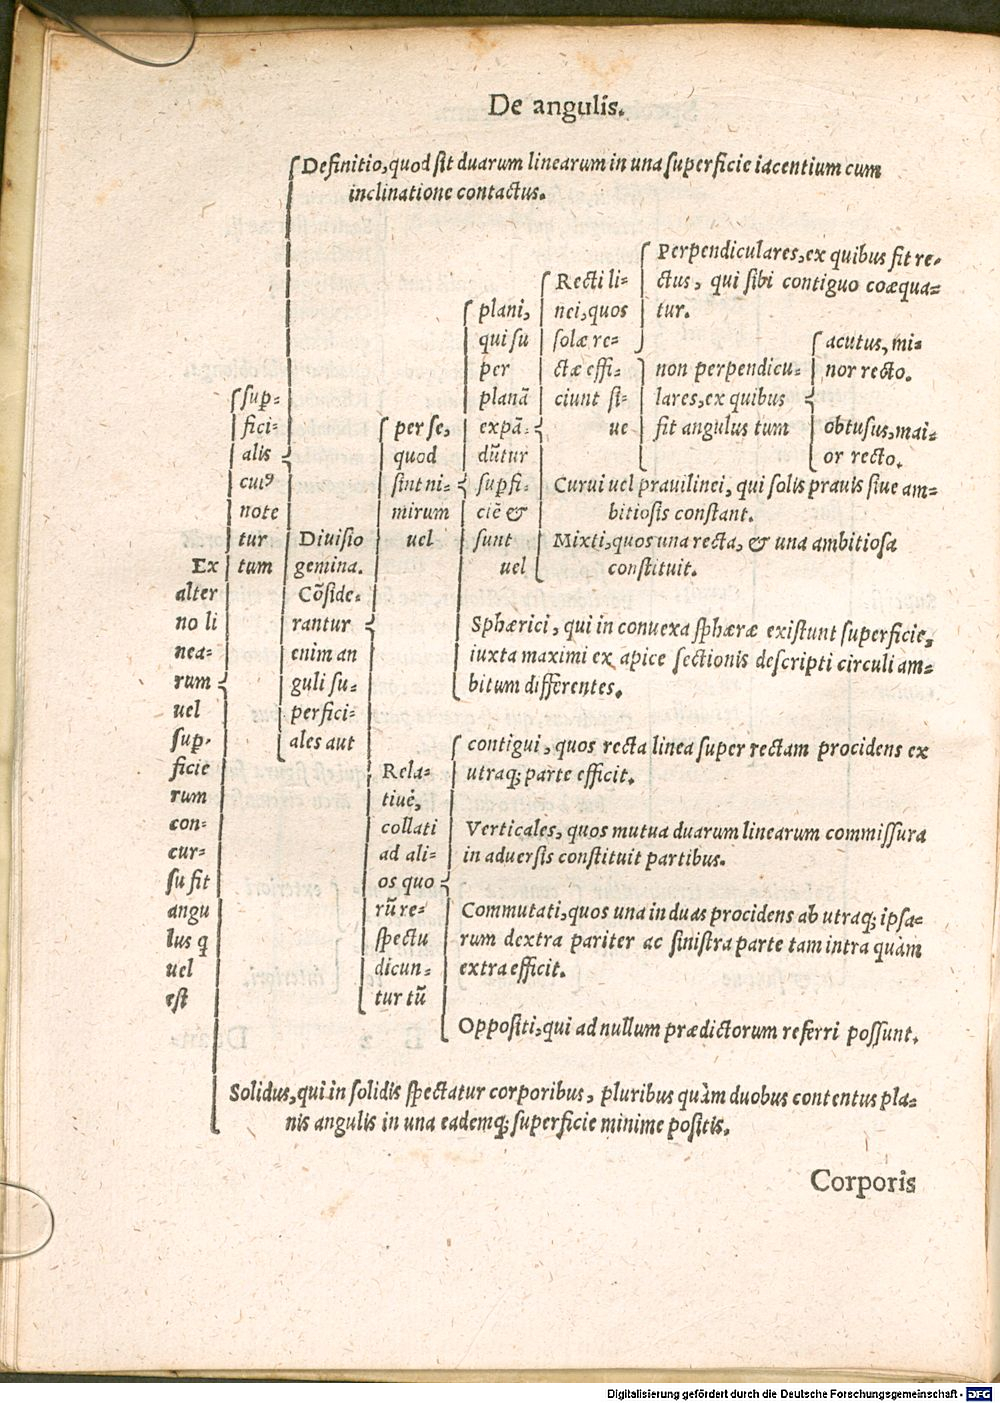 De angulis.
Definitio, quod sit duarum linearum in una superficie iacentium cum
inclinatione contactus.
Ex
alter
no li
nea-
rum
uel
sup-
ficie
rum
con-
cur-
su fit
angu
lus q
uel
est
sup-
fici-
alis
cuiꝰ
note
tur
tum
Diuisio
gemina.
Cõside-
rantur
enim an
guli su-
perfici-
ales aut
per se,
quod
sint ni-
mirum
uel
plani,
qui su
per
planã
expã-
dũtur
supfi-
ciẽ &
sunt
uel
Recti li-
nei, quos
solæ re-
ctæ effi-
ciunt si-
ue
Perpendiculares, ex quibus fit re-
ctus, qui sibi contiguo coæqua-
tur.
non perpendicu-
lares, ex quibus
fit angulus tum
acutus, mi-
nor recto.
obtusus, mai-
or recto.
Curui uel prauilinei, qui solis prauis siue am-
bitiosis constant.
Mixti, quos una recta, & una ambitiosa
constituit.
Sphærici, qui in conuexa sphæræ existunt superficie,
iuxta maximi ex apice sectionis descripti circuli am-
bitum differentes.
Rela-
tiuè,
collati
ad ali-
os quo
rũ re-
spectu
dicun-
tur tũ
contigui, quos recta linea super rectam procidens ex
utraq; parte efficit.
Verticales, quos mutua duarum linearum commissura
in aduersis constituit partibus.
Commutati, quos una in duas procidens ab utraq; ipsa-
rum dextra pariter ac sinistra parte tam intra quàm
extra efficit.
Oppositi, qui ad nullum prædictorum referri possunt.
Solidus, qui in solidis spectatur corporibus, pluribus quàm duobus contentus pla-
nis angulis in una eademq; superficie minime positis.
Corporis
Digitalisierung gefördert durch die Deutsche Forschungsgemeinschaft - DFG